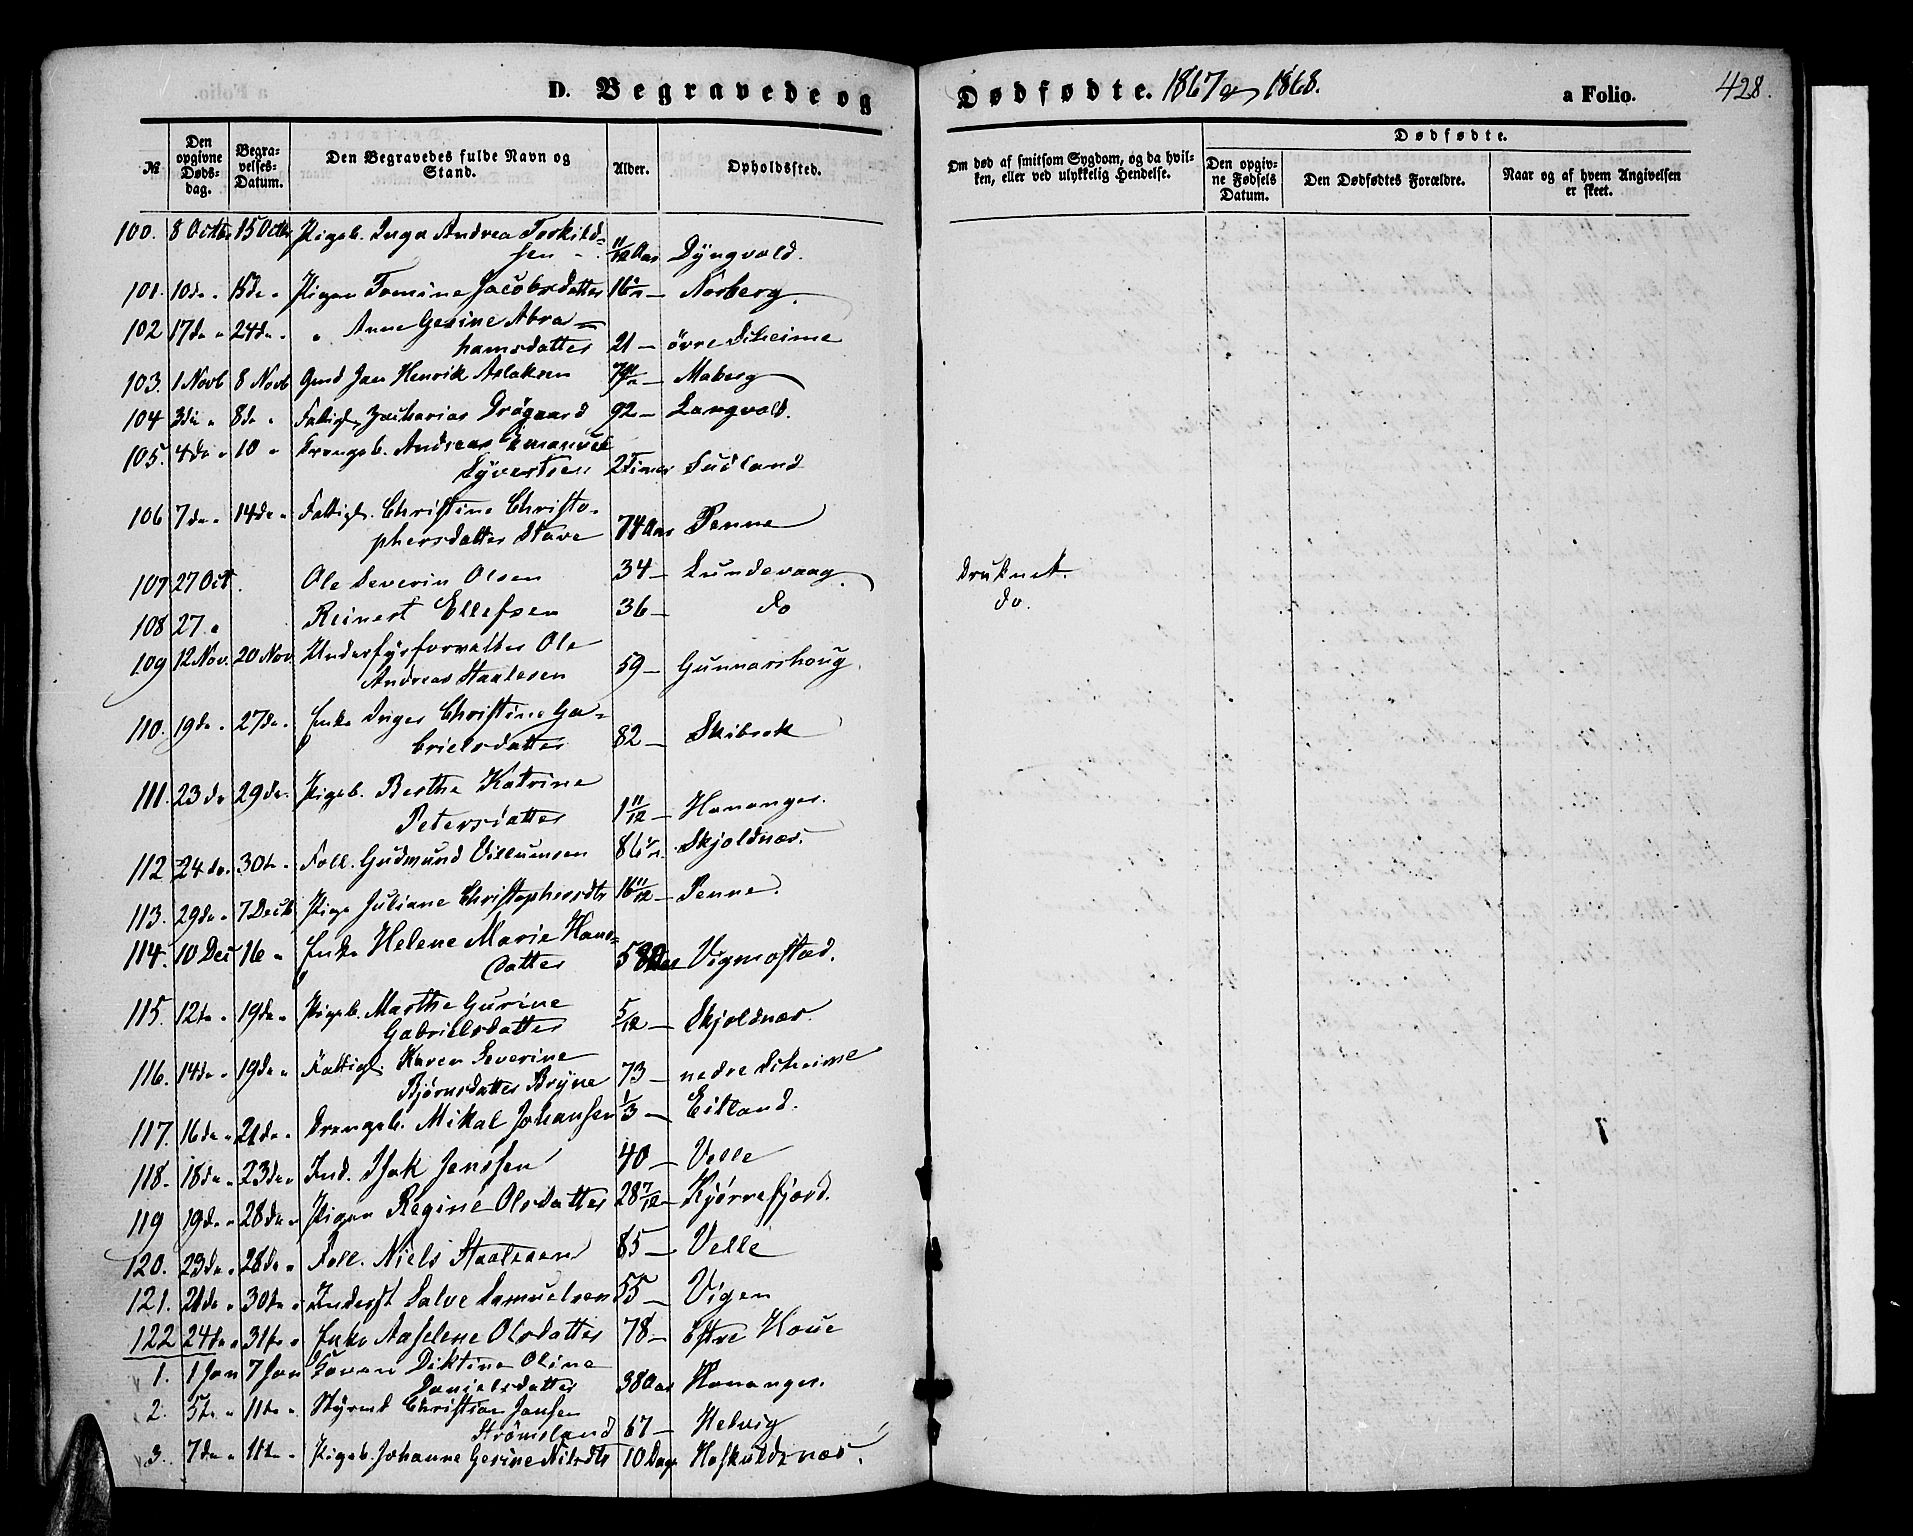 D. Begravede og Dødfødte. 1867 og 1868. a Folio. 428.
№ Den opgivne Dødsdag. Begravelses-Datum. Den Begravedes fulde Navn og Stand. Alder. Opholdssted. Om død af smitsom Sygdom, og da hvilken, eller ved ulykkelig Hendelse. Dødfødte. Den opgivne Fødsels Datum. Den Dødfødtes Forældre. Naar og af hvem Angivelsen er skeet.
100. 8 Octbr 15 Octbr Pigeb. Inga Andrea Torkild-
sen 11/12 Aar Dyngvold.
101. 10 do " 15 do " Pigen Tomine Jacobsdatter 16 Norberg.
102 17 do " 24 do " " Anne Gesine Abra-
hamsdatter 21 — övre Skeime
103. 1 Novb 8 Novb Gmd Jan Henrik Aslaksen Maberg
104 3die " 8 do " Fattigl. Zacharias Drögaard 92 — Langvold.
105. 4 do " 10 " Drengeb. Andreas Emanuel
Syvertsen 2 Timer Sudland
106 7 do " 14 do " Fattigl. Christine Christo-
phersdatter Stave 74 Aar Penne
107 27 Oct. Ole Severin Olsen 34 — Lundevaag. Druknet.
108 27 " Reinert Ellefsen 36 — do do.
109 12 Nov. 20 Nov. Underfyrforvalter Ole
Andreas Staalesen 59 — Gunnarshoug.
110. 19 do " 27 do " Enke Inger Christine Ga-
brielsdatter 82 — Skibrek
111. 23 do 29 do " Pigeb. Berthe Katrine
Petersdatter 1 11/12 — Hananger.
112 24 do " 30te " Foll. Gudmund Villumsen 86 Skjoldnæs.
113. 29 do " 7 Decb Pige Juliane Christophersdtr 16 11/12 — Penne.
114. 10 Dec 16 " Enke Helene Marie Hans-
datter 58 Aar Vigmostad.
115. 12te " 19 do " Pigeb. Marthe Gurine
Gabrielsdatter 5/12 — Skjoldnæs.
116. 14 do " 19 do " Fattigl. Karen Severine
Bjørnsdatter Bryne 73 — nedre Skeime
117. 16 do " 21 do " Drengeb. Mikal Johansen 1/3 — Eitland.
118. 18 do " 23 do " Ind. Isak Jenssen 40 — Velle
119 19 do " 28 do " Pigen Regine Olsdatter 28 7/12 — Kjørrefjord.
120. 23 do " 28 do " Foll. Niels Staalesen 85 — Velle
121. 21 do " 30te " Inderst Salve Samuelsen 55 — Vigen
122 24 do " 31te " Enke Aaselene Olsdatter 78 — östre Houe
1. 1 Jan 7 Jan Diktine Oline
Danielsdatter 38 Aar Hananger.
2. 5te " 11te " Styrmd Christian Jansen
Strömsland 67 — Helvig
3. 7 do " 11te " Pigeb. Johanne Gesine Nilsdtr 10 Dage Höskuldsnæs.